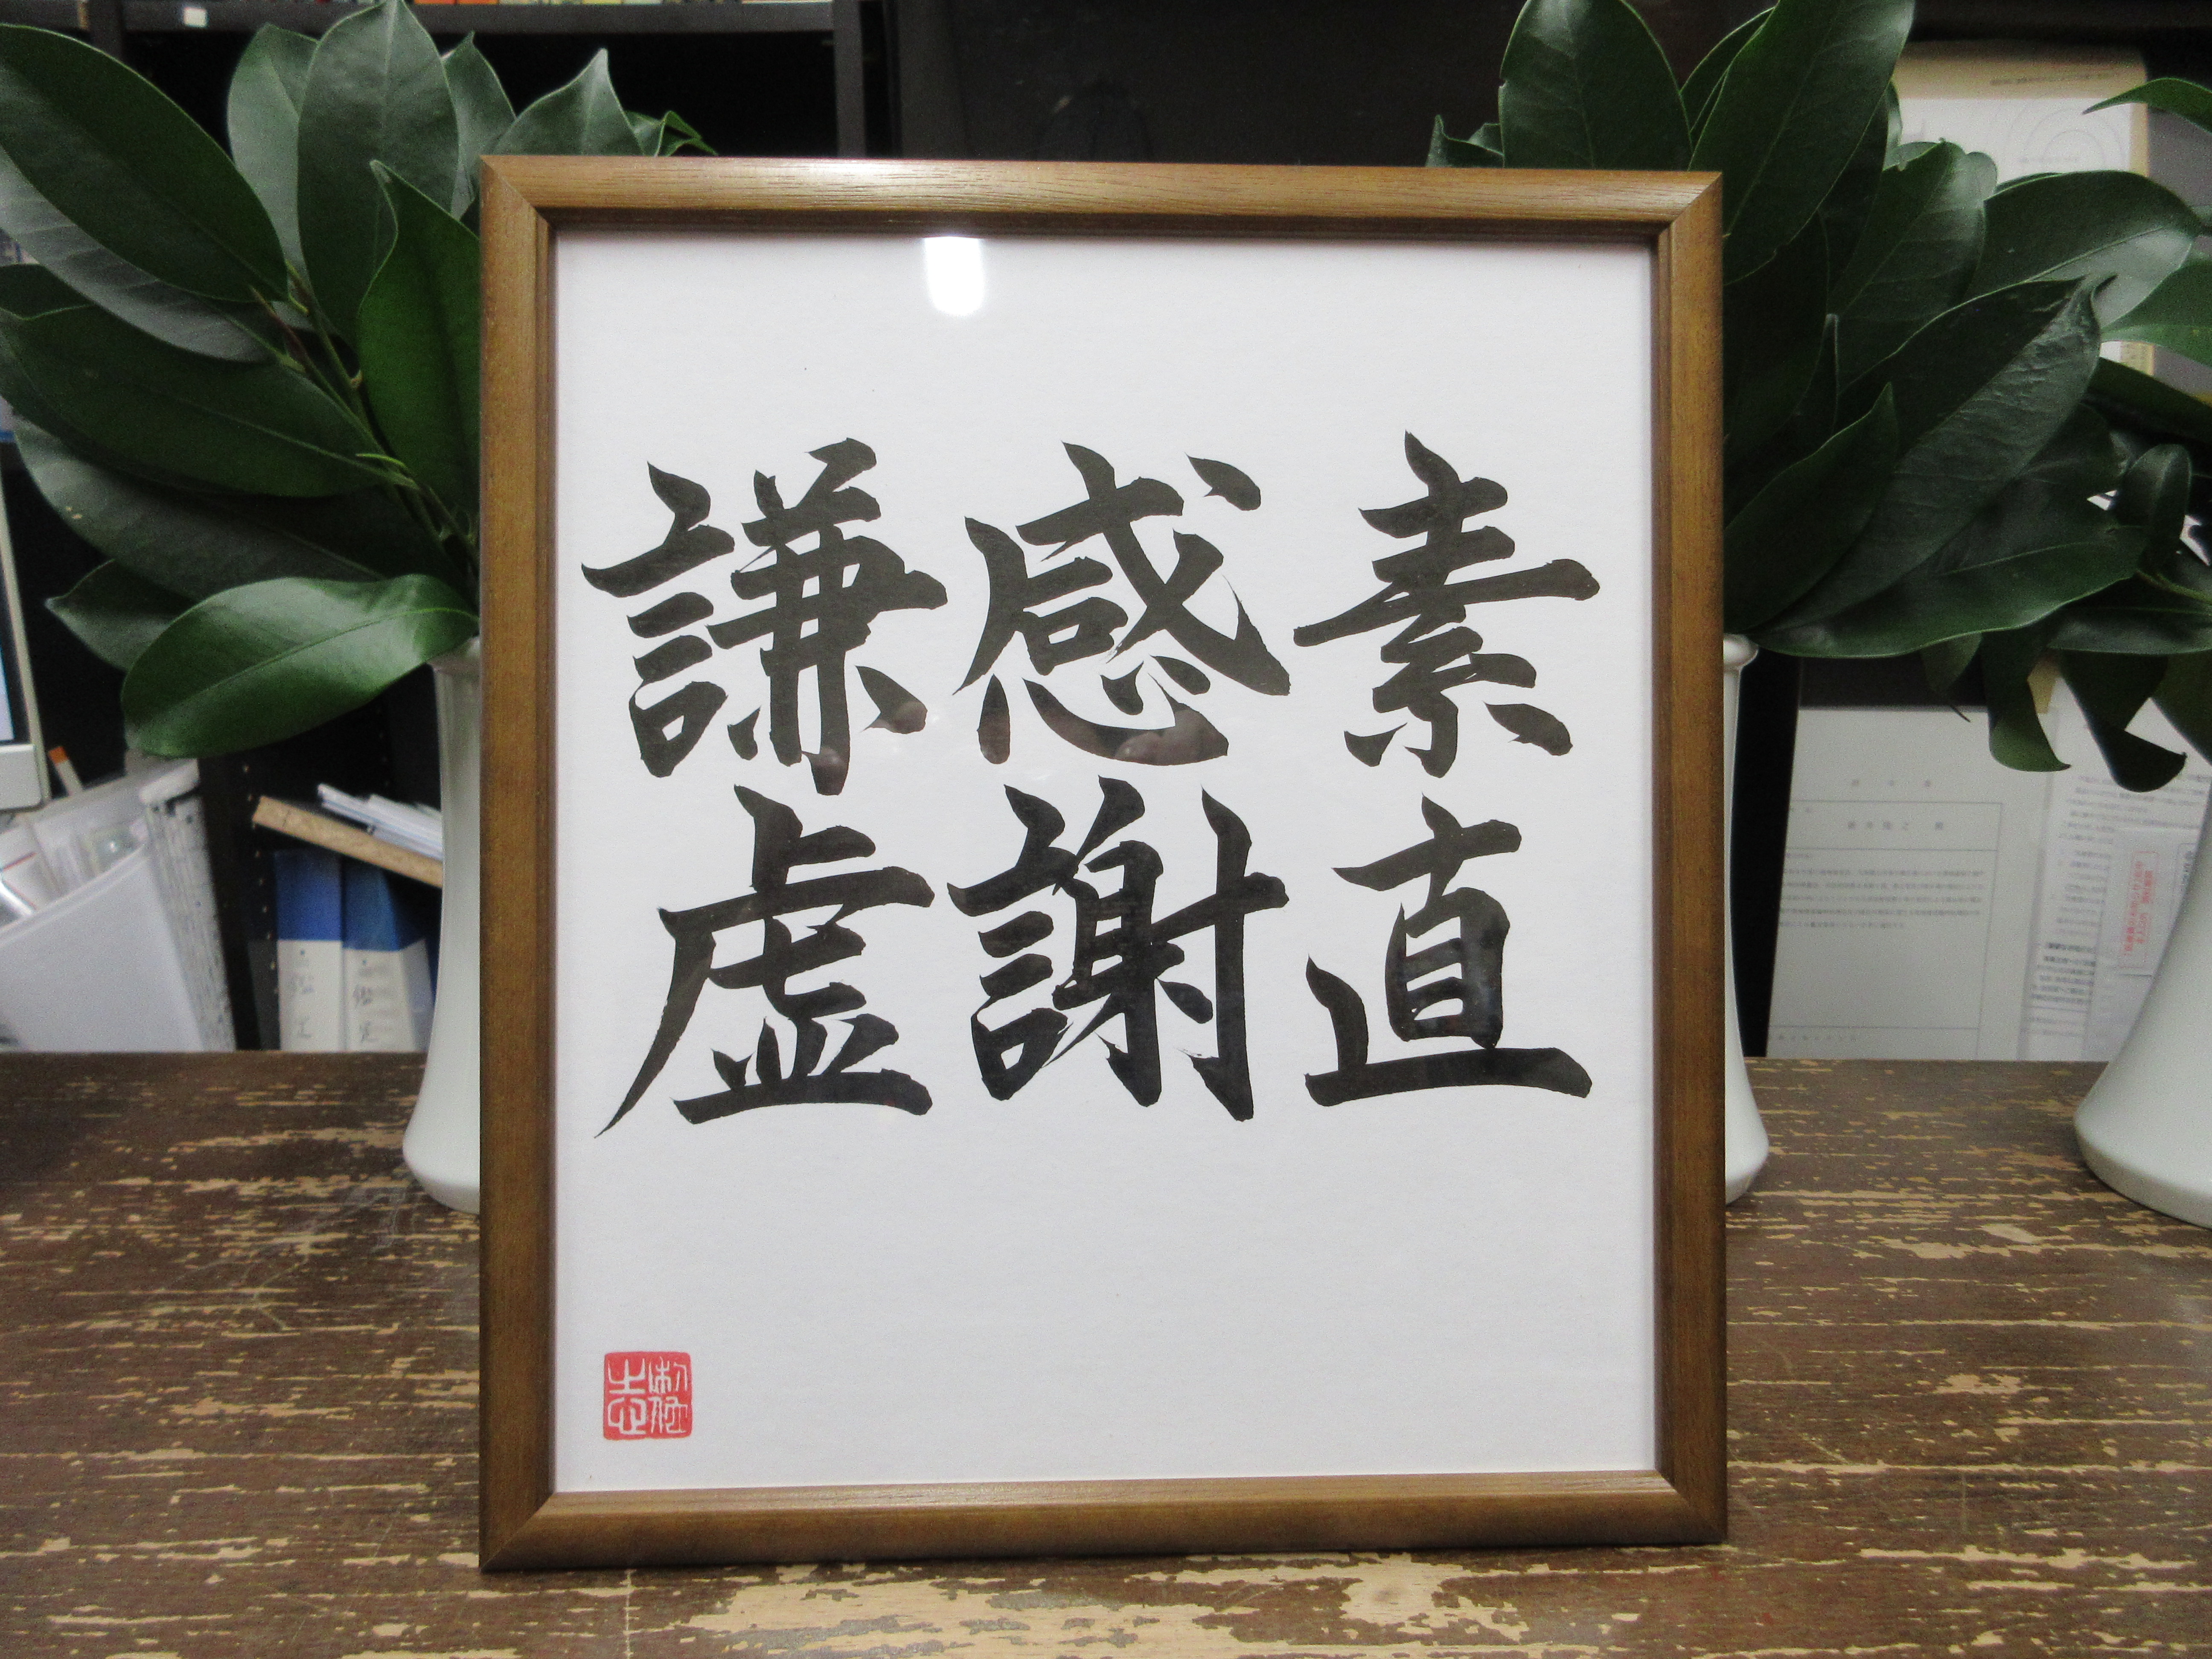 素直
感謝
謙虚